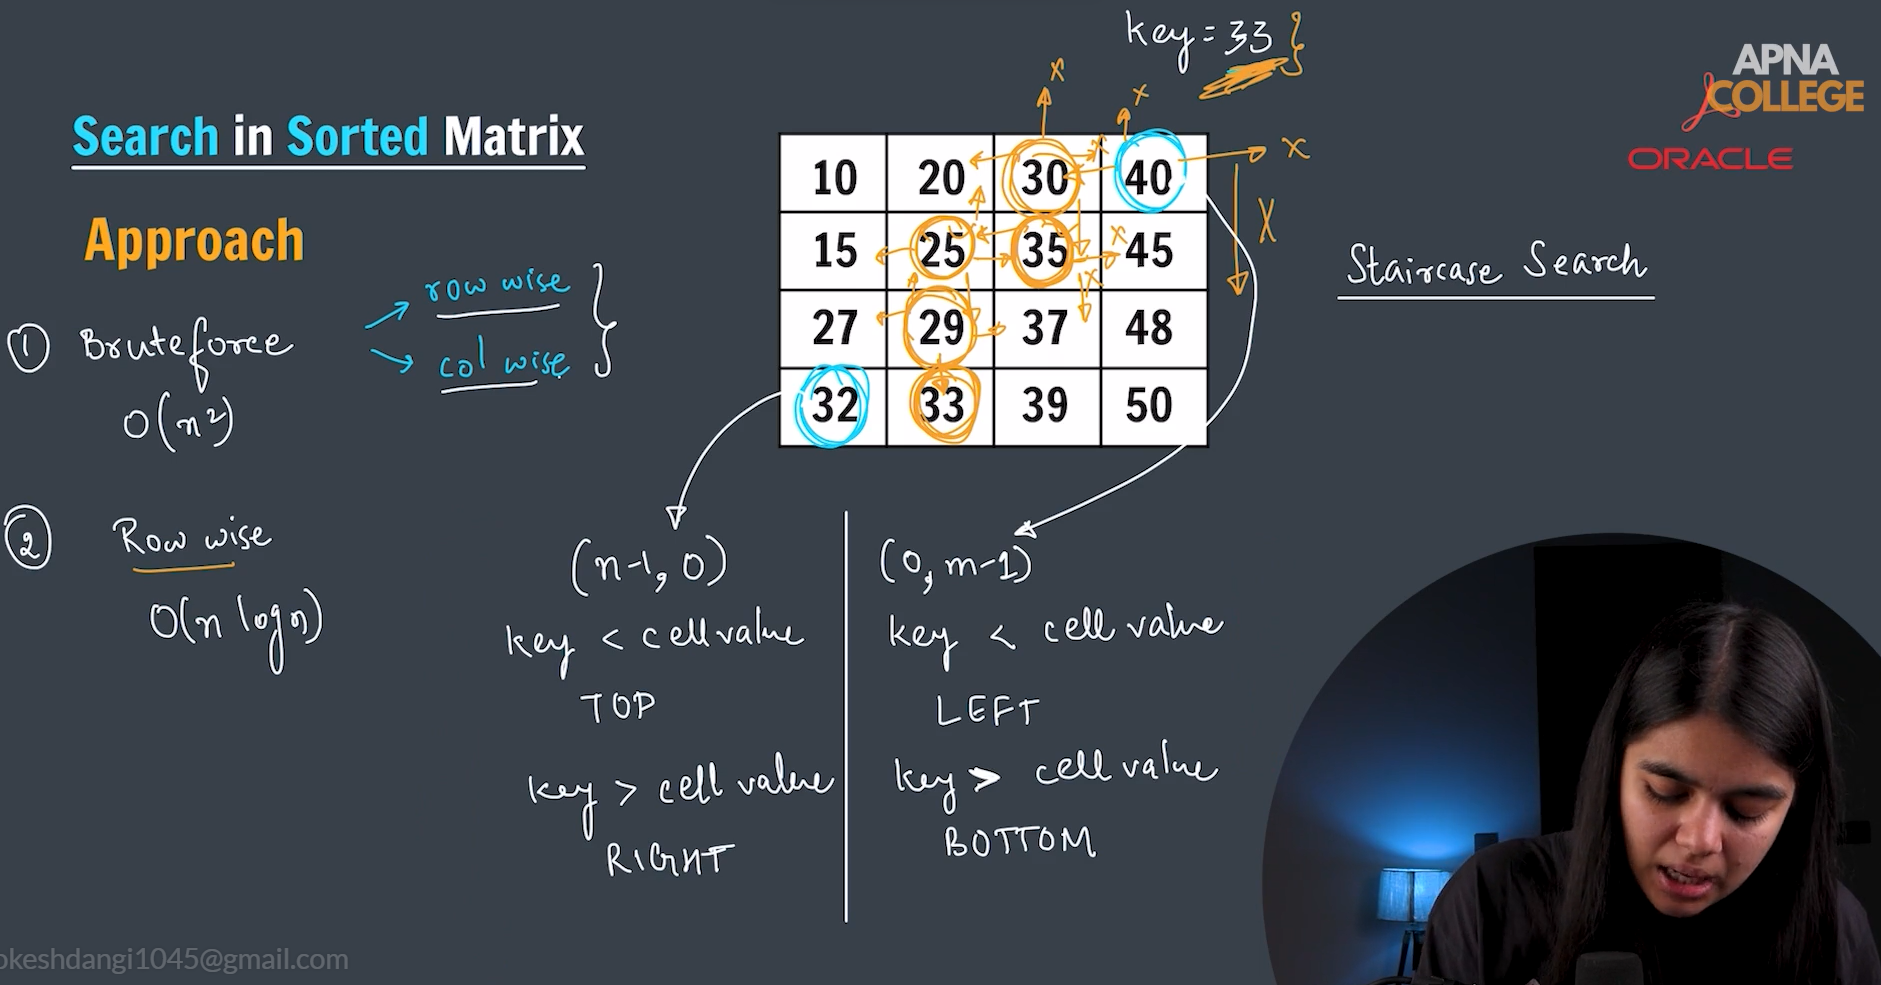 key = 33 }
APNA
COLLEGE
ORACLE
Search in Sorted Matrix
Approach
① Bruteforce
row wise
col wise
O(n²)
② Row wise
O(n log n)
10 20 30 40
15 25 35 45
27 29 37 48
32 33 39 50
x
x
x
x
x
x
X
Staircase Search
(n-1, 0)
key < cell value
TOP
key > cell value
RIGHT
(0, m-1)
key < cell value
LEFT
key > cell value
BOTTOM
okeshdangi1045@gmail.com